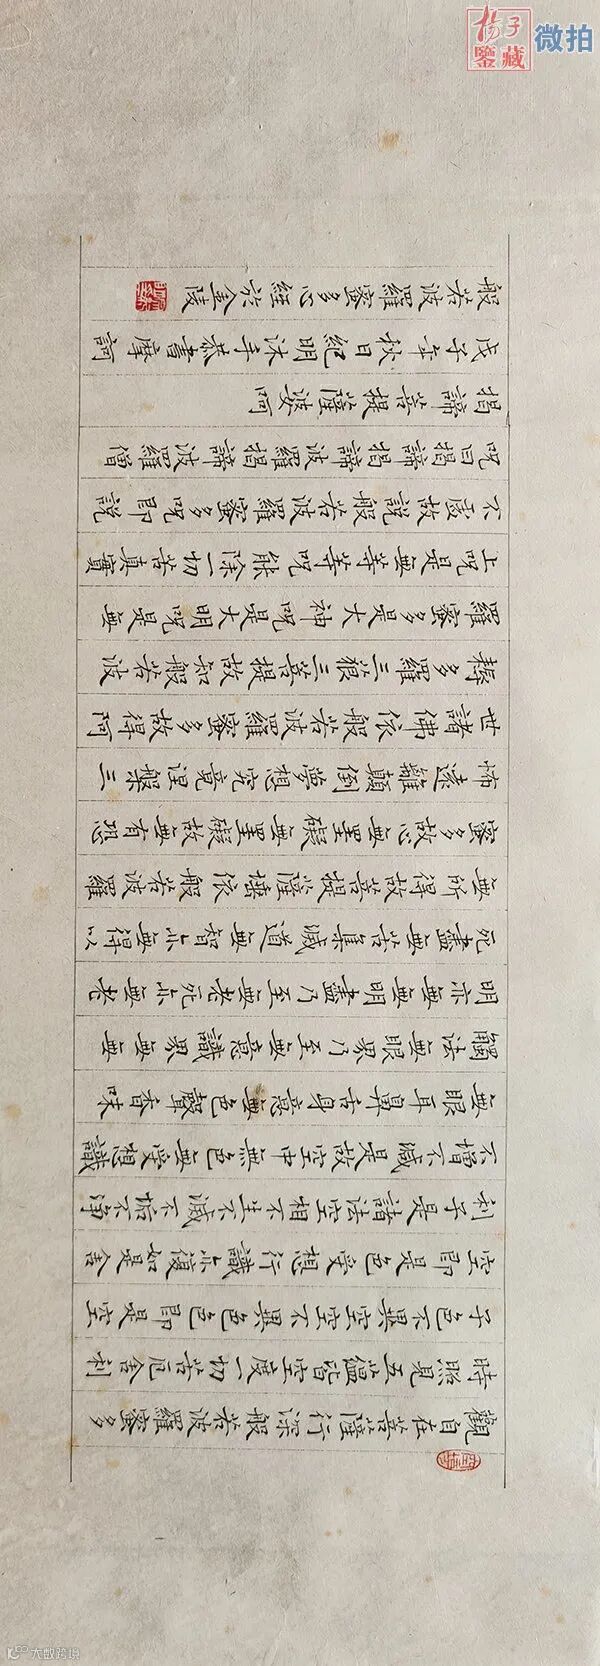 楊子鑒藏
微拍
觀自在菩薩行深般若波羅蜜多
時照見五蘊皆空度一切苦厄舍利
子色不異空空不異色色即是空
空即是色受想行識亦復如是舍
利子是諸法空相不生不滅不垢不淨
不增不減是故空中無色無受想識
無眼耳鼻舌身意無色聲香味
觸法無眼界乃至無意識界無無
明亦無無明盡乃至無老死亦無老
死盡無苦集滅道無智亦無得以
無所得故菩提薩埵依般若波羅
蜜多故心無罣礙無罣礙故無有恐
怖遠離顛倒夢想究竟涅槃三
世諸佛依般若波羅蜜多故得阿
耨多羅三藐三菩提故知般若波
羅蜜多是大神呪是大明呪是無
上呪是無等等呪能除一切苦真實
不虛故說般若波羅蜜多呪即說
呪曰揭諦揭諦波羅揭諦波羅僧
揭諦菩提薩婆呵
戊子年秋日紀明沐手恭書摩訶
般若波羅蜜多心經於金陵
大數跨境